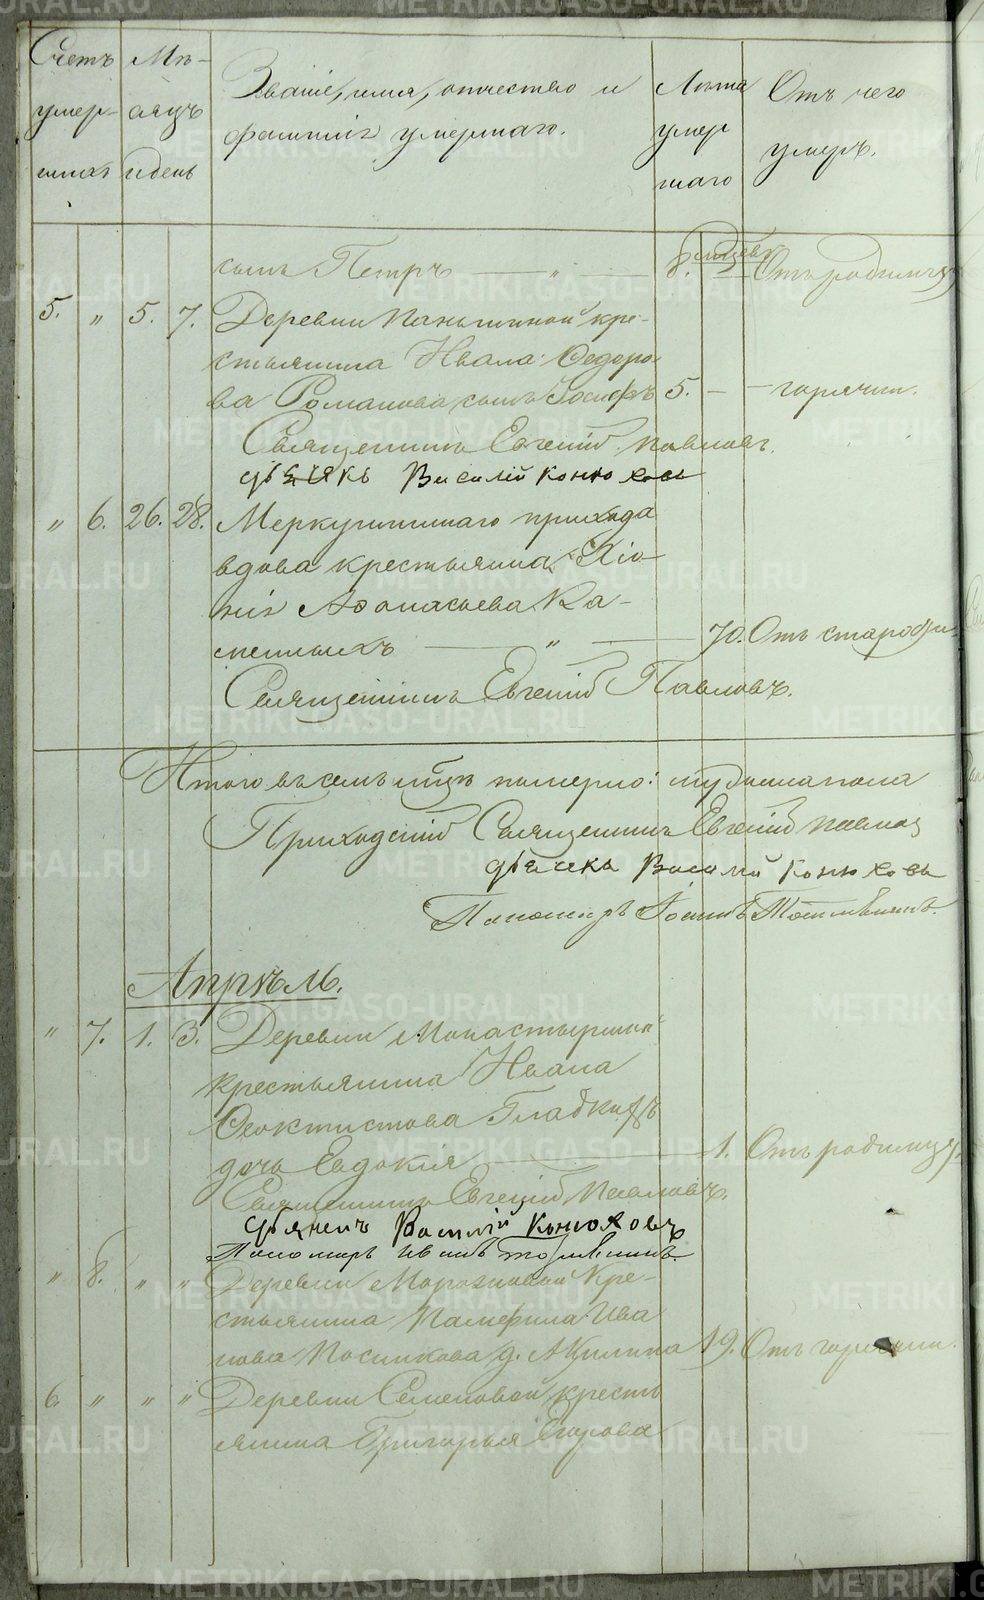 Счетъ умер- шихъ
Мѣ- сяцъ и день
Званіе, имя, отчество и
фамилія умершаго.
Лѣта умер шаго
Отъ чего умеръ.
сынъ Петръ — „ — Отъ родимца
5. „ 5. 7. Деревни Паньшиной кре-
стьянина Ивана Ѳедоро-
ва Романова сынъ Іосифъ 5. — — горячки.
Священникъ Евгеній Павловъ.
дьячекъ Василій Конюховъ
„ 6. 26. 28. Меркушинскаго прихода
вдова крестьянина Хіо-
нія Аѳонасьева Ка-
менныхъ — „ — 70. Отъ старости.
Священникъ Евгеній Павловъ.
Итого въ семъ мѣсяцѣ померло: мужеска пола
Приходскій Священникъ Евгеній Павловъ
дьячекъ Василій Конюховъ
Пономарь Іоаннъ
Апрѣль.
„ 7. 1. 3. Деревни Монастырской
крестьянина Ивана
Ѳеоктистова Гладкихъ
дочь Евдокія — 1. Отъ родимца.
Священникъ Евгеній Павловъ.
Василій Конюховъ
Пономарь Иванъ
„ 8. „ „ Деревни Морозковой кре-
стьянина Памфила Ива
нова Посникова д. Акилина 19. Отъ горячки.
6. „ „ „ Деревни Семеновой кресть
янина Григорья Егорова
METRIKI.GASO-URAL.RU